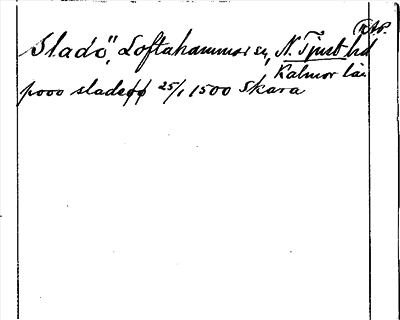 RAP.
Sladö", Loftahammar sn, N. Tjust hd
Kalmar län
pooo sladeøø 25/1 1500 Skara